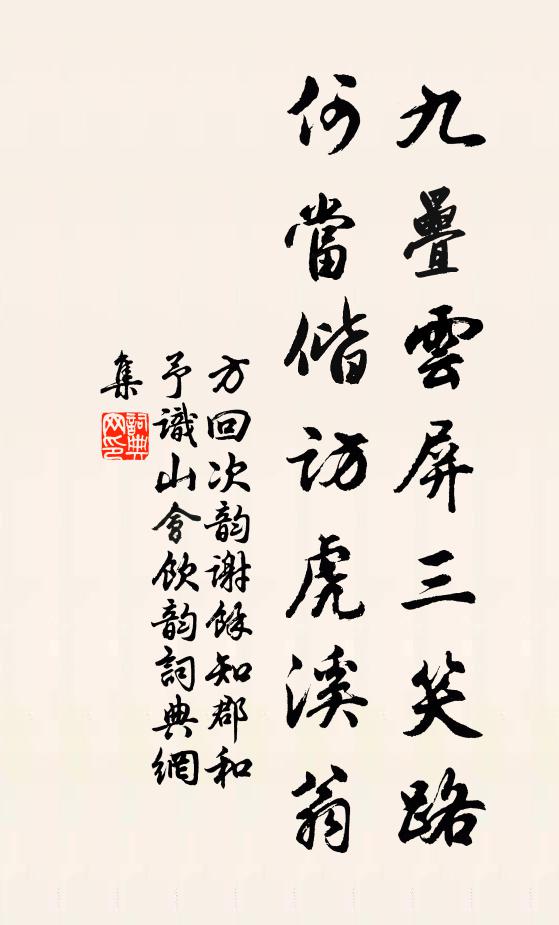 九疊雲屏三笑路
何當偕访虎溪翁
方回次韵谢餘知郡和
予識山會飲韵詞典網
集
詞典
网印